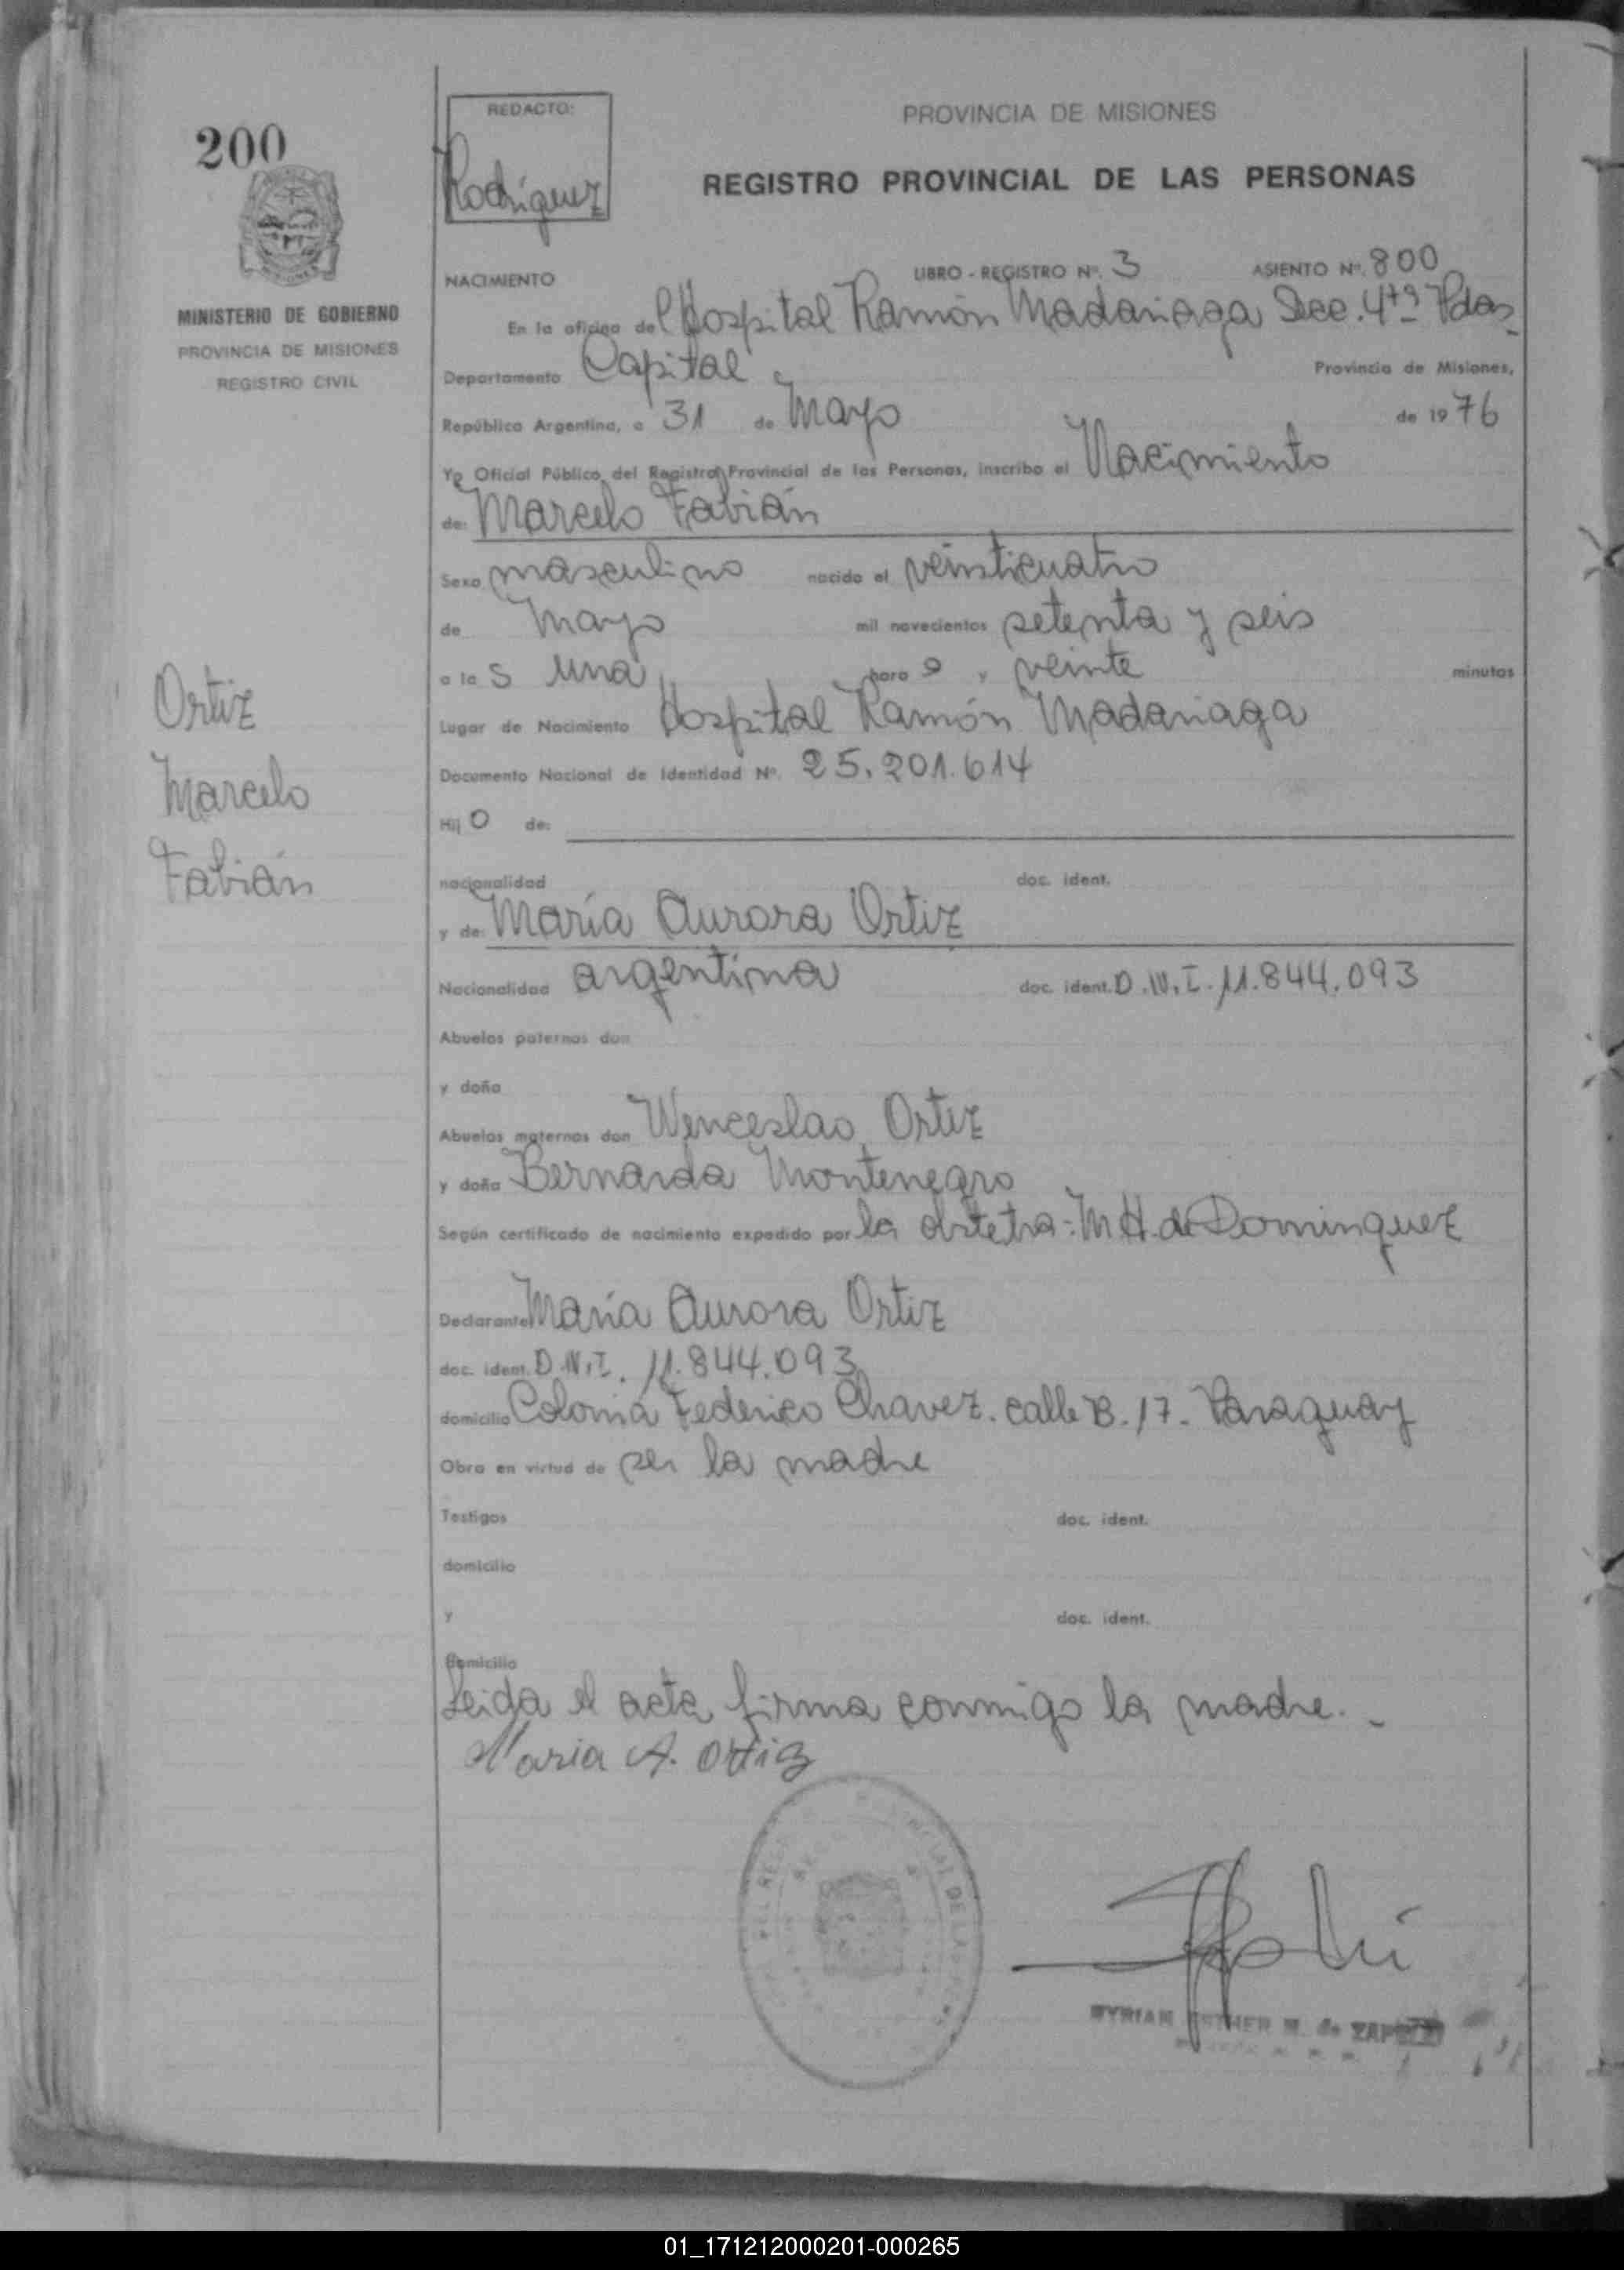 200
REDACTO:
Rodríguez
PROVINCIA DE MISIONES
REGISTRO PROVINCIAL DE LAS PERSONAS
MINISTERIO DE GOBIERNO
PROVINCIA DE MISIONES
REGISTRO CIVIL
NACIMIENTO LIBRO - REGISTRO Nº. 3 ASIENTO Nº. 800
En la oficina del Hospital Ramón Madariaga Sec. 4ta Pdas
Departamento Capital Provincia de Misiones,
República Argentina, a 31 de Mayo de 1976
Yo Oficial Público del Registro Provincial de las Personas, inscribo el Nacimiento
de: Marcelo Fabián
Sexo masculino nacido el veinticuatro
de Mayo mil novecientos setenta y seis
a la s una hora y veinte minutos
Lugar de Nacimiento Hospital Ramón Madariaga
Documento Nacional de Identidad Nº. 25.201.614
Hij o de:
nacionalidad doc. ident.
y de: María Aurora Ortiz
Nacionalidad argentina doc. ident. D.N.I. 11.844.093
Abuelos paternos don
y doña
Abuelos maternos don Wenceslao Ortiz
y doña Bernarda Montenegro
Según certificado de nacimiento expedido por la obstetra: M H. de Dominguez
Declarante María Aurora Ortiz
doc. ident. D.N.I. 11.844.093
domicilio Colonia Federico Chavez. calle B. 17. Paraguay
Obra en virtud de ser la madre
Testigos doc. ident.
domicilio
y doc. ident.
domicilio
Leida el acta firma conmigo la madre. -
Maria A. Ortiz
Ortiz
Marcelo
Fabián
MYRIAM ESTHER M. de
01_171212000201-000265